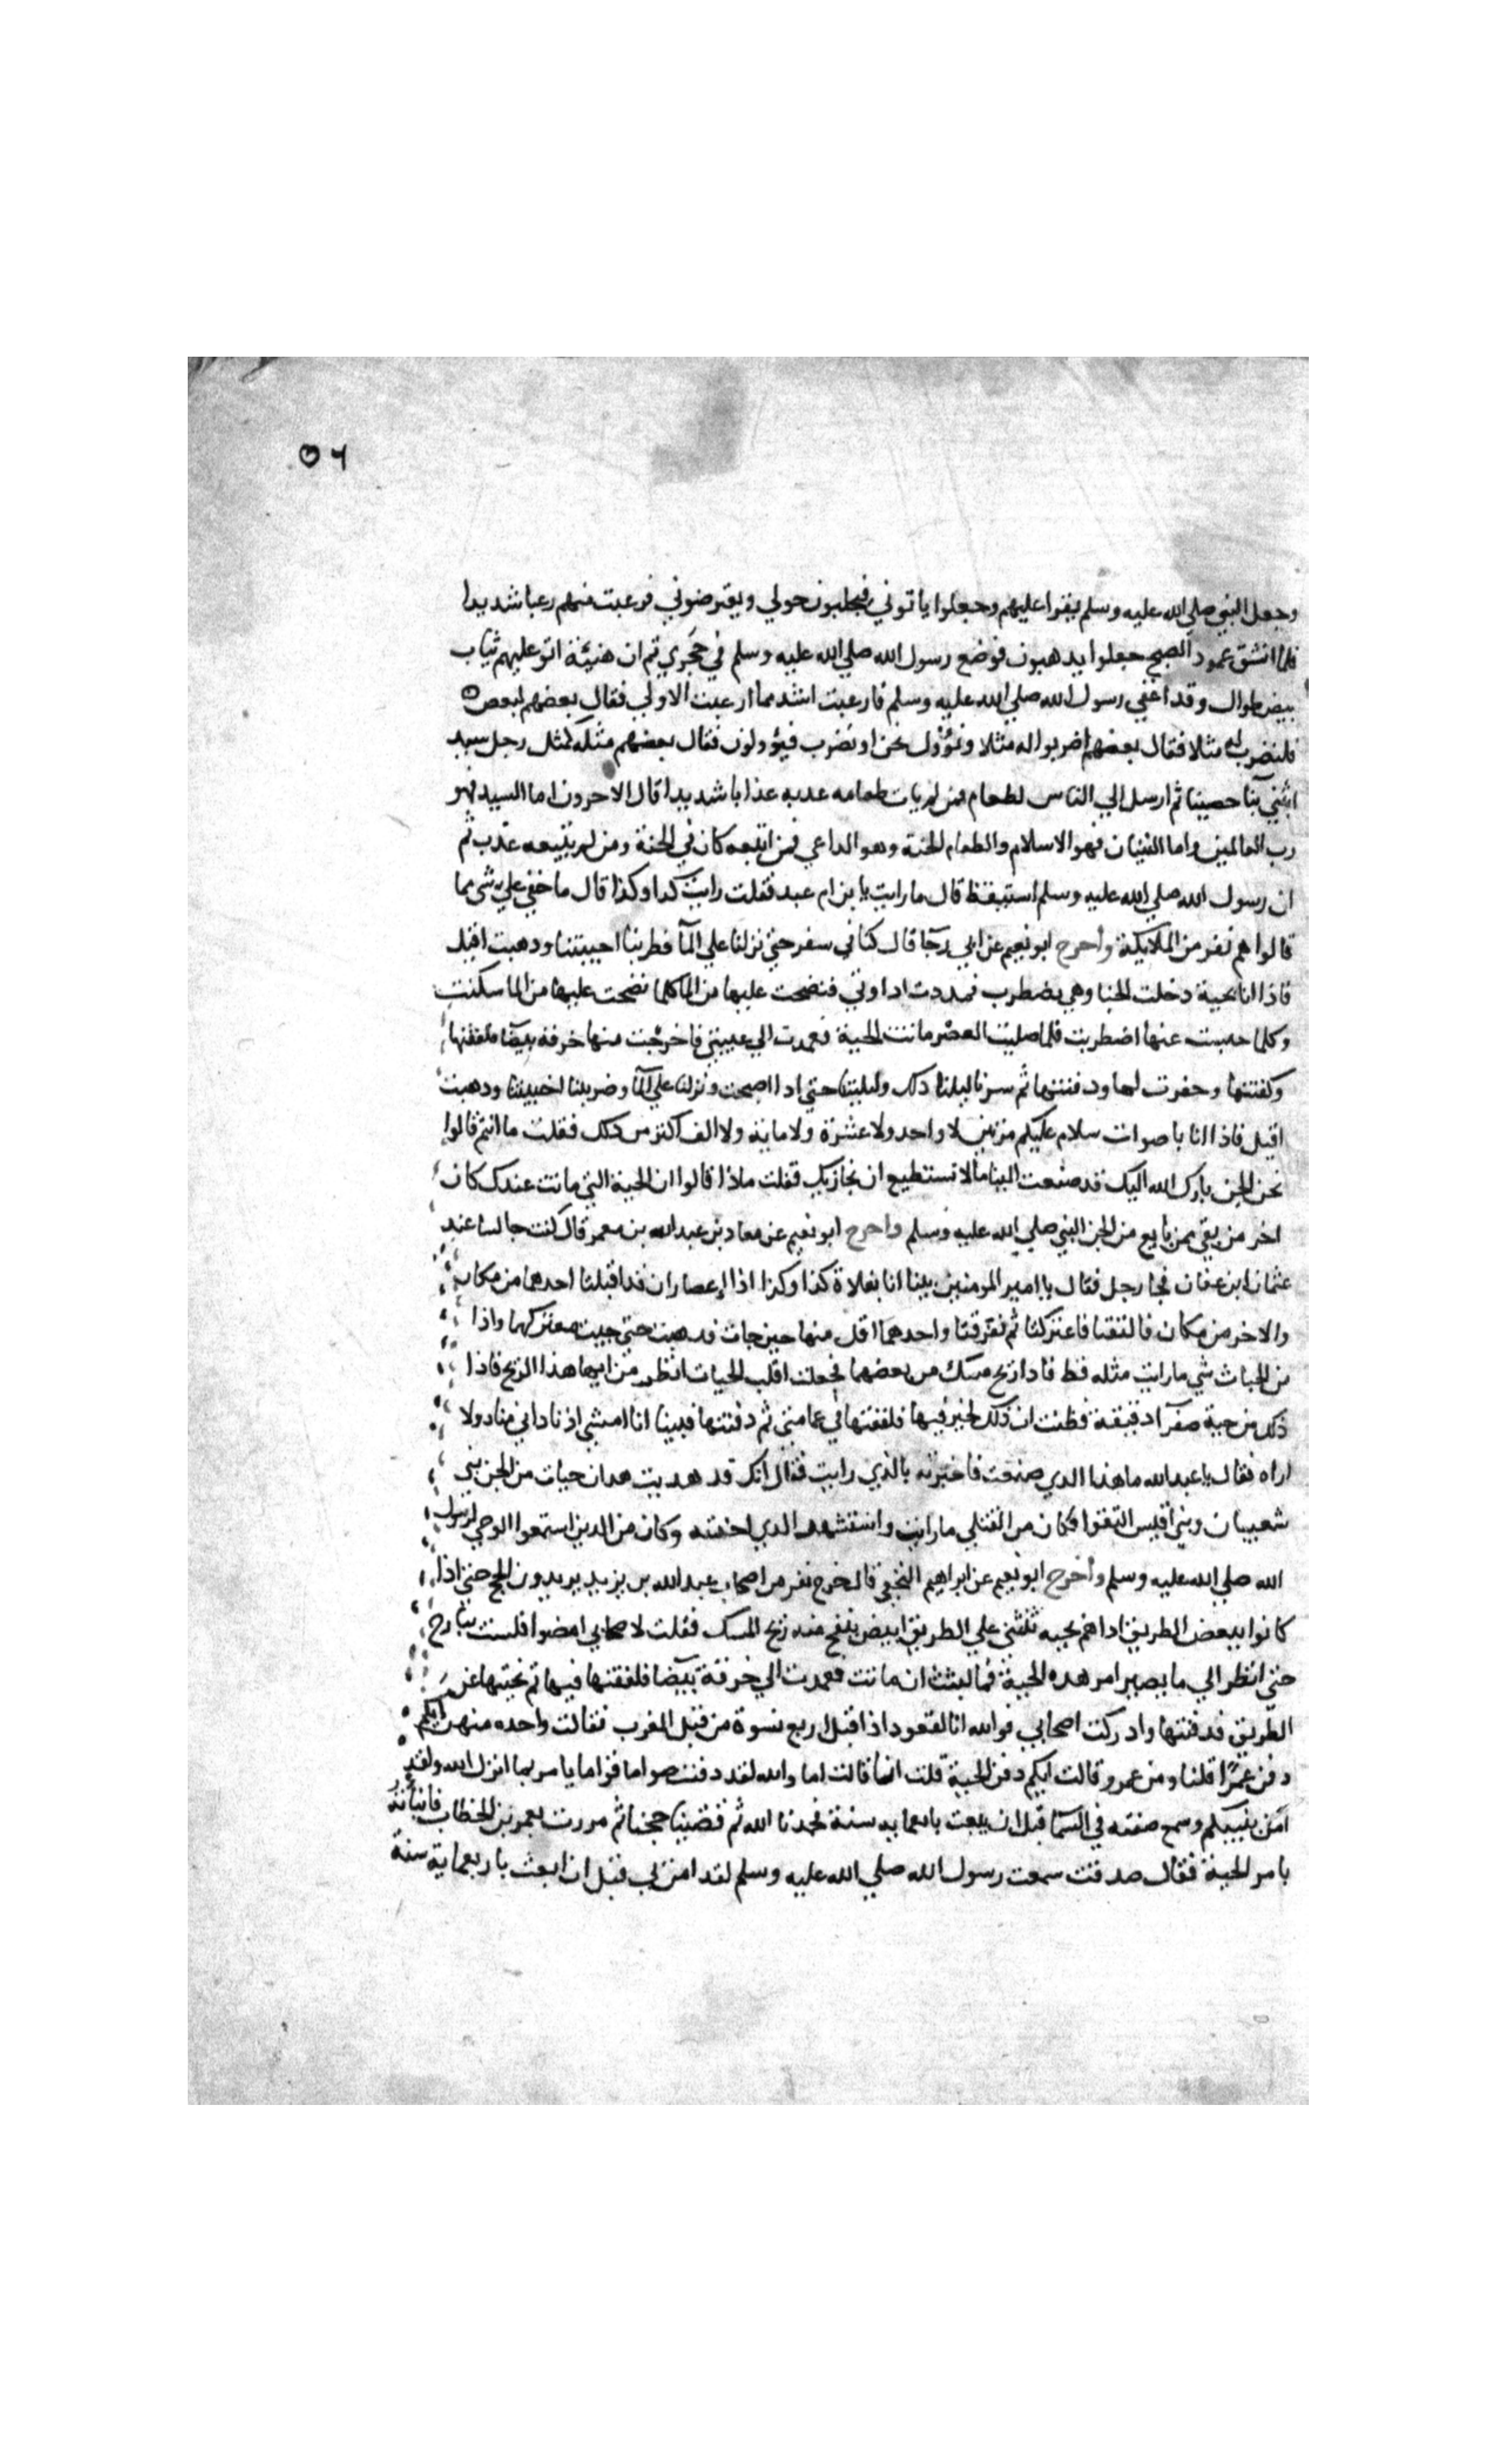 ٥٦
وجعل النبي صلي الله عليه وسلم يقرا عليهم وجعلوا ياتوني فيجلبون حولي ويعترضوني فرعبت منهم رعبا شديدا
فلما انشق عمود الصبح جعلوا يدهبون فوضع رسول الله صلي الله عليه وسلم في حجري ثم ان هنيئة اتو عليهم ثياب
بيض طوال وقد اغفي رسول الله صلي الله عليه وسلم فارعبت اشد مما ارعبت الاولي فقال بعضهم لبعض
فلنضرب له مثلا فقال بعضهم اضربوا له مثلا ونؤول نحن او نضرب فيؤولون فقال بعضهم مثله كمثل رجل سيد
ابتني بنا حصينا ثم ارسل الي الناس لطعام فمن لم يات طعامه عدبه عذابا شديدا قال الاخرون اما السيد فهو
رب العالمين واما البنيان فهو الاسلام والطعام الجنة وهو الداعي فمن اتبعه كان في الجنة ومن لم يتبعه عذب ثم
ان رسول الله صلي الله عليه وسلم استيقظ قال ما رايت يا بن ام عبد فقلت رايت كدا وكذا قال ما خفي علي شي مما
قالوا هم نفر من الملايكة وأخرج ابو نعيم عن ابي رجا قال كنا في سفر حتي نزلنا علي المآ فضربنا اخبيتنا ودهبت اقيل
فاذا انا بحية دخلت الخبا وهي تضطرب فمددت اداوتي فنضحت عليها من الما كلما نضحت عليها من الما سكنت
وكلما حبست عنها اضطربت فلما صليت العصر ماتت الحية فعمدت الي عيبتي فاخرجت منها خرقة بيضا فلففتها
وكفنتها وحفرت لها ودفنتها ثم سرنا ليلنا دلك وليلتنا حتي ادا اصبحت ونزلنا علي المآ وضربنا اخبيتنا ودهبت
اقيل فاذا انا باصوات سلام عليكم مرتين لا واحد ولا عشرة ولا ماية ولا الف اكثر من دلك فقلت ما انتم قالوا
نحن الجن بارك الله اليك قد صنعت الينا ما لا نستطيع ان نجازيك فقلت ماذا قالوا ان الحية التي ماتت عندك كان
اخر من بقي ممن بايع من الجن النبي صلي الله عليه وسلم واخرج ابو نعيم عن معاد بن عبد الله بن معمر قال كنت جالسا عند
عثمان ابن عفان فجا رجل فقال يا امير المومنين بينا انا بفلاة كذا وكذا اذا اعصاران قد اقبلتا احدهما من مكان
والاخر من مكان فالتقتا فاعتركتا ثم تفرقتا واحدهما اقل منها حين جات فدهبت حتي جيت معتركهما واذا
من الحيات شي ما رايت مثله قط فادا ريح مسك من بعضهما فجعلت اقلب الحيات انظر من ايهما هذا الريح فاذا
ذلك من حية صفرآ دقيقة فظنت ان ذلك لخير فيها فلففتها في عمامتي ثم دفنتها فبينا انا امشي اذ ناداني مناد ولا
اراه فقال يا عبد الله ما هذا الدي صنعت فاخبرته بالذي رايت فقال انك قد هديت هدان حيات من الجن بني
شعيبان وبني اقيس التقوا فكان من القتلي ما رايت واستشهد الدي اخدته وكان من الدين استمعوا الوحي لرسول
الله صلي الله عليه وسلم وأخرج ابو نعيم عن ابراهيم النخعي قال خرج نفر من اصحاب عبد الله بن يزيد يريدون الحج حتي اذا
كانوا ببعض الطريق اداهم بحيه تتثني علي الطريق ابيض ينفح منه ريح المسك فقلت لاصحابي امضوا فلست ببارح
حتي انظر الي ما يصير امر هده الحية فما لبثت ان ماتت فعمدت الي خرقة بيضا فلففتها فيها ثم نحيتها عن
الطريق فدفنتها وادركت اصحابي فوالله انا لقعود اذ اقبل اربع نسوة من قبل المغرب فقالت واحده منهن ايكم
دفن عمرًا قلنا ومن عمرو قالت ايكم دفن الحية قلت انا قالت اما والله لقد دفنت صواما قواما يامر بما انزل الله ولقد
آمن بنبيكم وسمع صفته في السما قبل ان يبعث باربعمايه سنة فحمدنا الله ثم قضينا حجنا ثم مررت بعمر بن الخطاب فانباته
بامر الحية فقال صدقت سمعت رسول الله صلي الله عليه وسلم لقد امن بي قبل ان ابعث باربعماية سنة